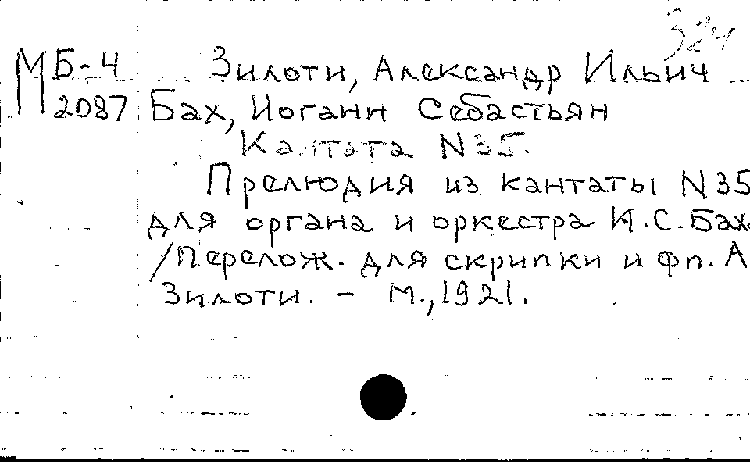 324
МБ-4 Зилоти, Александр Ильич
М 2087 Бах, Иоганн Себастьян
Кантата N35.
Прелюдия из кантаты N35
для органа и оркестра И.С.Бах
/Перелож. для скрипки и фп. А
Зилоти. - М., 1921.